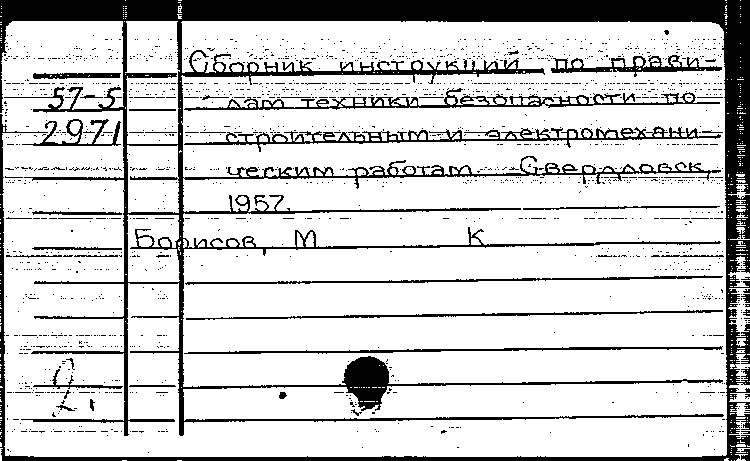 Сборник инструкций по прави-
57-5 лам техники безопасности по
2971 строительным и электромехани-
ческим работам. Свердловск,
1957.
Борисов, М К
2.